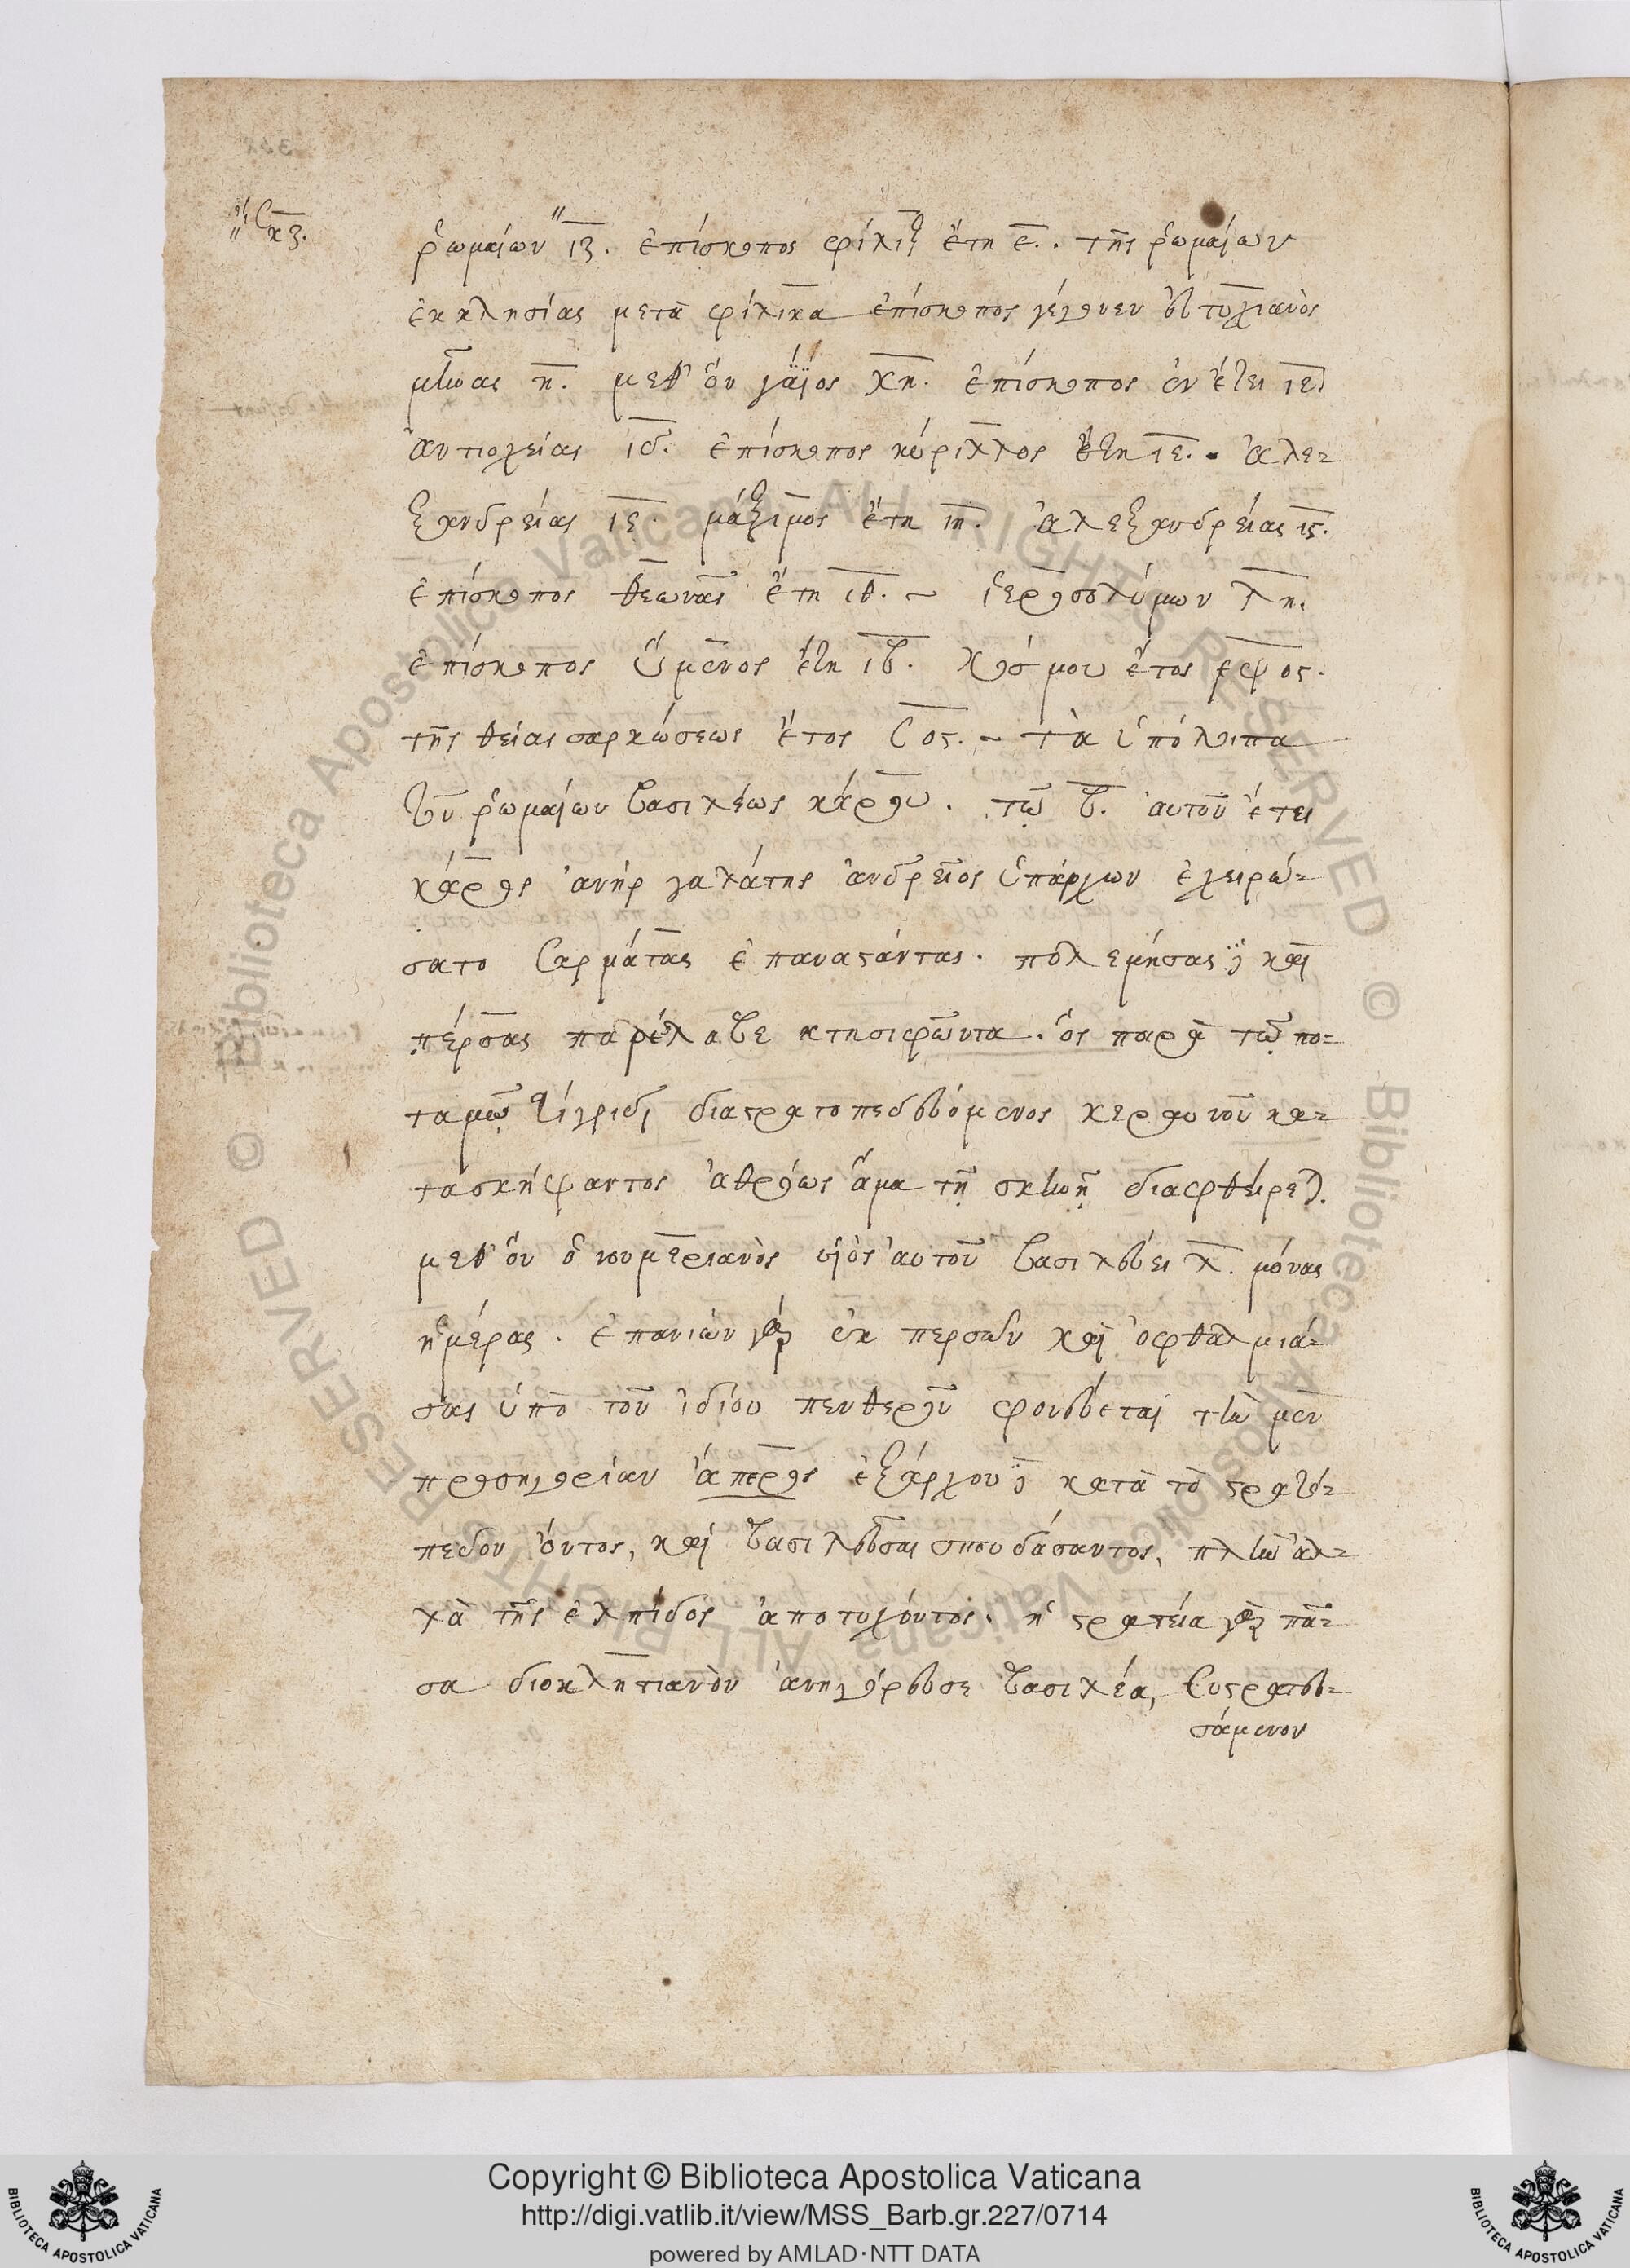 κζ.
ῥωμαίων ιζ. ἐπίσκοπος φίλιξ ἔτη ε. τῆς ῥωμαίων
ἐκκλησίας μετὰ φίλικα ἐπίσκοπος γέγονεν εὐτυχιανὸς
μῆνας η. μεθ' ὃν γάϊος κη. ἐπίσκοπος ἐν ἔτει ιε.
ἀντιοχείας ιδ. ἐπίσκοπος κύριλλος ἔτη ιε. ἀλε=
ξανδρείας ιε. μάξιμος ἔτη ιη. ἀλεξανδρείας ις.
ἐπίσκοπος θεωνᾶς ἔτη ιθ. ~ ἱεροσολύμων λη.
ἐπίσκοπος ὑμένος ἔτη ιβ. κόσμου ἔτος εψος.
τῆς θείας σαρκώσεως ἔτος σος. ~ τὰ ὑπόλοιπα
τῶν ῥωμαίων βασιλέως κάρου. τῷ β. αὐτοῦ ἔτει
κάρος ἀνὴρ γαλάτης ἀνδρεῖος ὑπάρχων ἐχειρώ=
σατο σαρμάτας ἐπαναστάντας. πολεμήσας δὲ καὶ
πέρσας παρέλαβε κτησιφῶντα. ὃς παρὰ τῷ πο=
ταμῷ τίγριδι διαστρατοπεδευόμενος κεραυνοῦ κα=
τασκήψαντος ἀθρόως ἅμα τῇ σκηνῇ διαφθείρεται.
μεθ' ὃν ὁ νουμεριανὸς υἱὸς αὐτοῦ βασιλεύει λ. μόνας
ἡμέρας. ἐπανιὼν γὰρ ἐκ περσῶν καὶ ὀφθαλμιά=
σας ὑπὸ τοῦ ἰδίου πενθεροῦ φονεύεται τὴν μὲν
προσηγορίαν ἄπερος ἐξάρχου δὲ κατὰ τὸ στρατό=
πεδον ὄντος, καὶ βασιλεῦσαι σπουδάσαντος, πλὴν ἀλ=
λὰ τῆς ἐλπίδος ἀποτυχόντος. ἡ στρατεία γὰρ πᾶ=
σα διοκλητιανὸν ἀνηγόρευσε βασιλέα, συστρατευ=
σάμενον
Copyright © Biblioteca Apostolica Vaticana
http://digi.vatlib.it/view/MSS_Barb.gr.227/0714
powered by AMLAD·NTT DATA